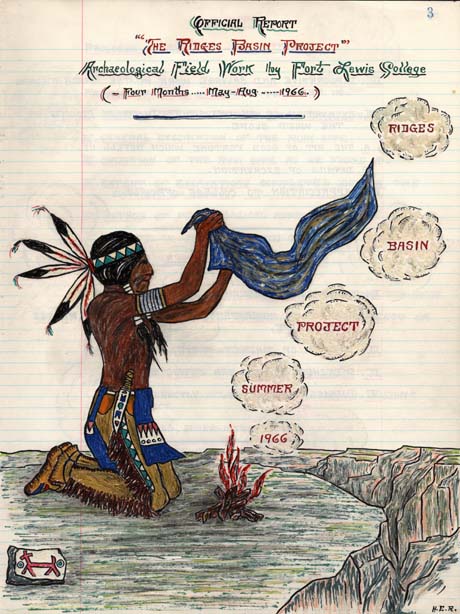 3
Official Report
""The Ridges Basin Project""
Archaeological Field Work by Fort Lewis College
(- Four Months ..... May - Aug ..... 1966.)
RIDGES
BASIN
PROJECT
SUMMER
1966
H.E.R.